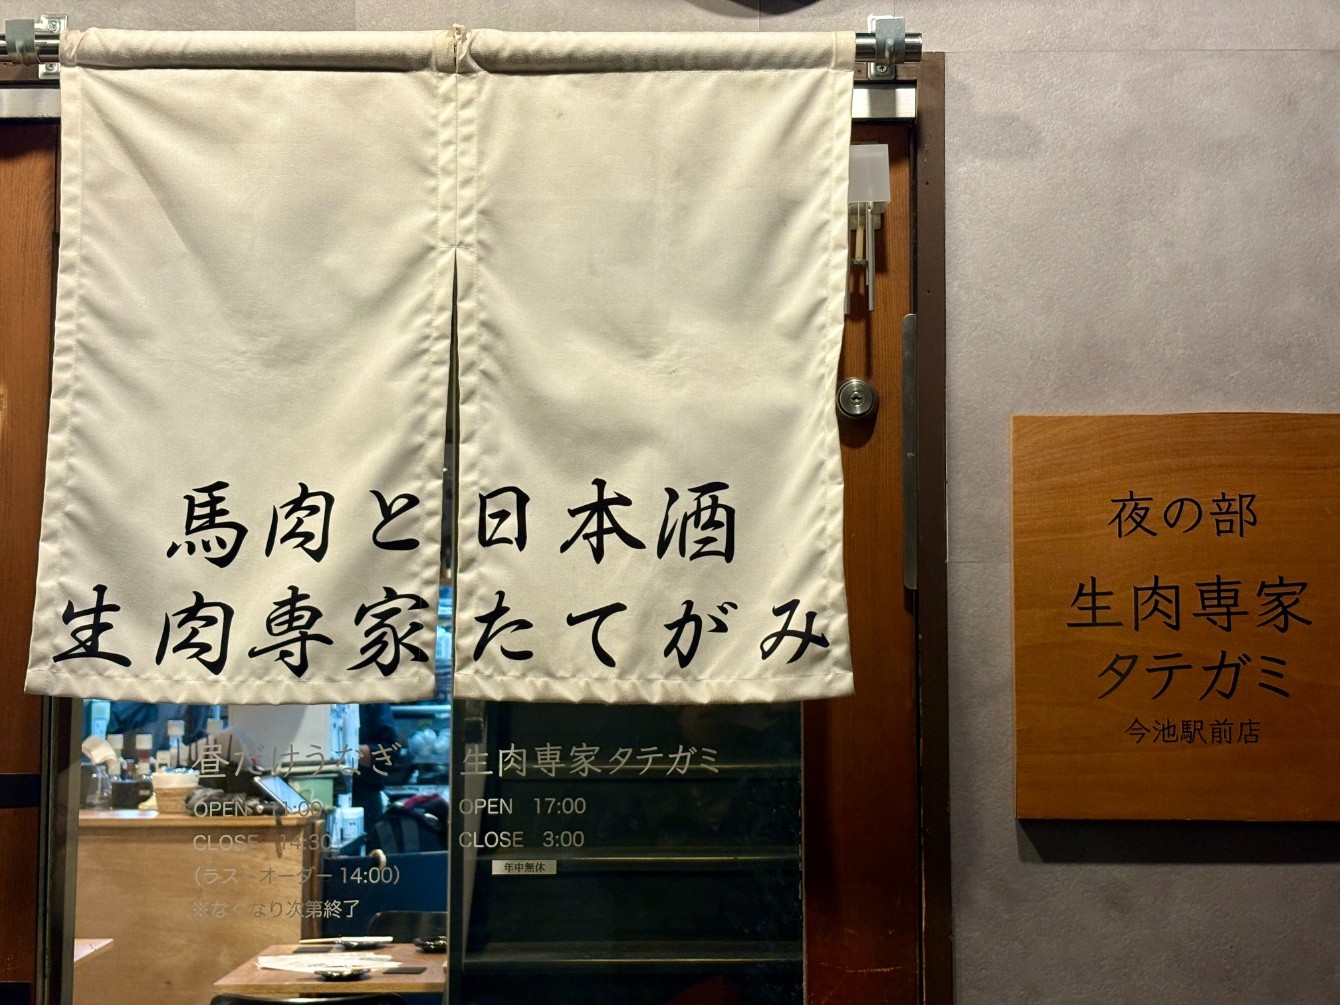 馬肉と日本酒
生肉専家たてがみ
昼だけうなぎ
OPEN 11:00
CLOSE 14:30
(ラストオーダー 14:00)
※なくなり次第終了
生肉専家タテガミ
OPEN 17:00
CLOSE 3:00
年中無休
夜の部
生肉専家
タテガミ
今池駅前店